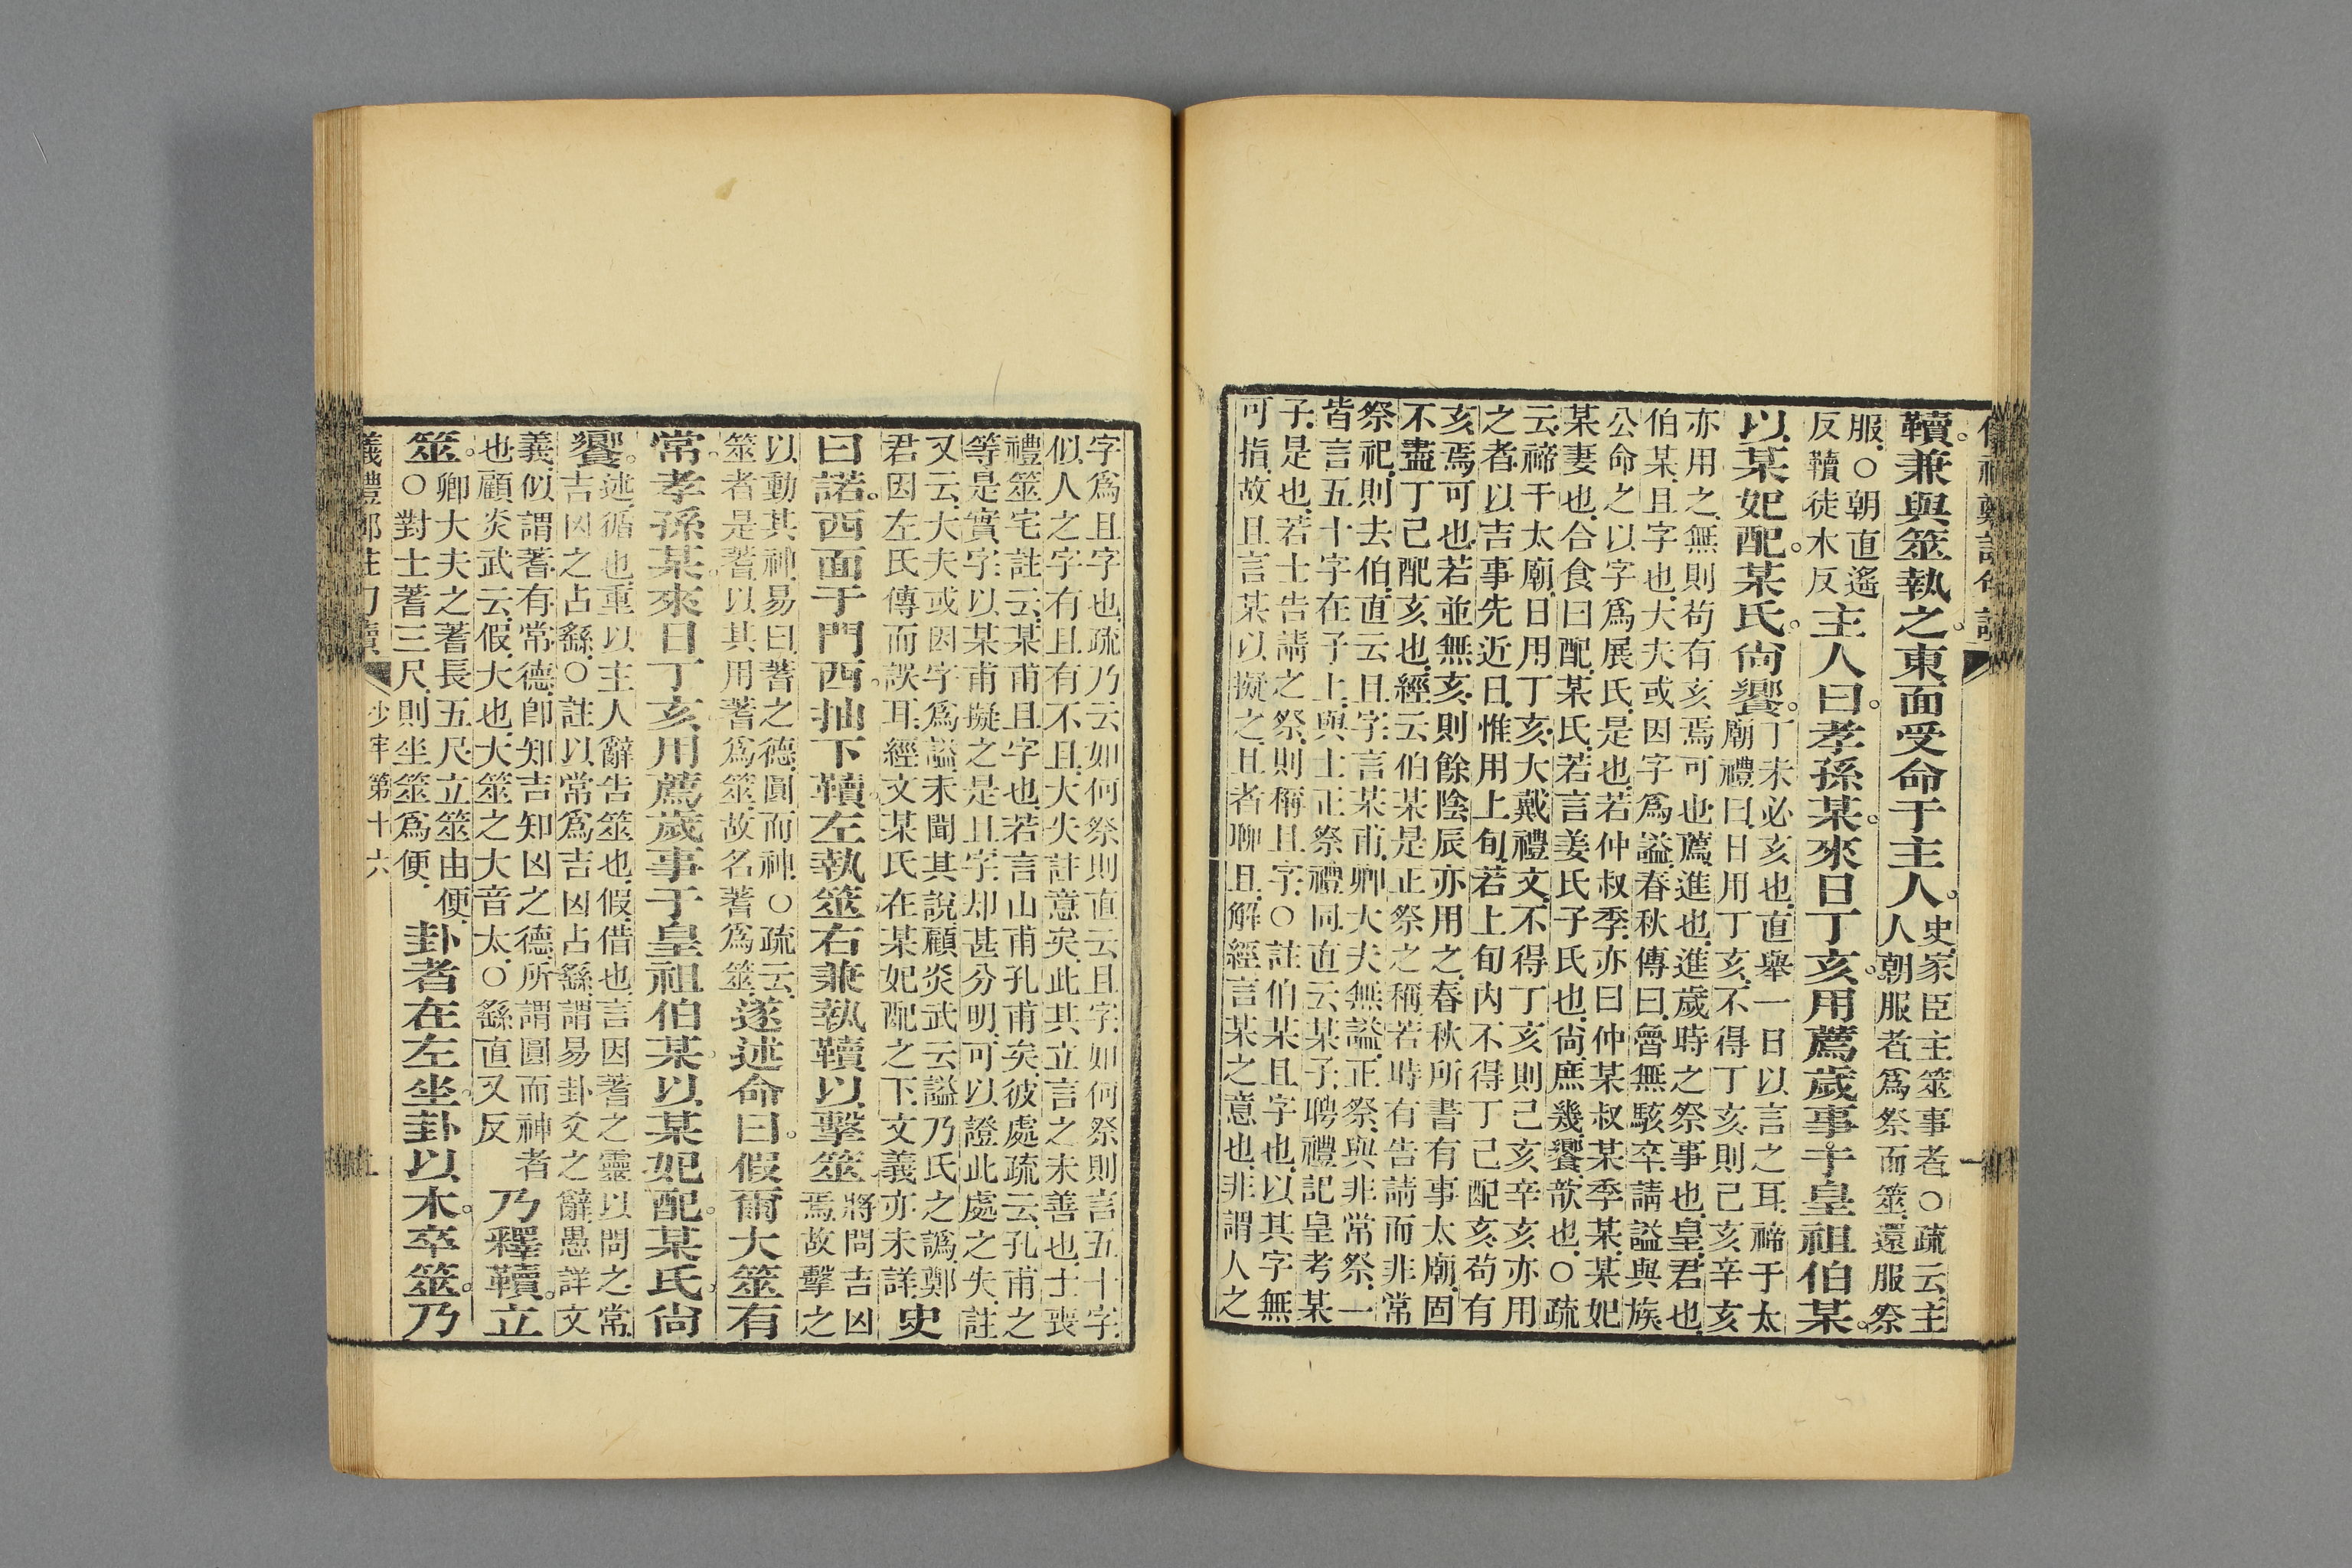 韇兼與筮執之東面受命于主人史家臣主筮事者○疏云主
人朝服者爲祭而筮還服祭
服○朝直遙
反韇徒木反主人曰孝孫某來日丁亥用薦歲事于皇祖伯某
以某妃配某氏尙饗丁未必亥也直舉一日以言之耳禘于太
廟禮曰日用丁亥不得丁亥則己亥辛亥
亦用之無則苟有亥焉可也薦進也進歲時之祭事也皇君也
伯某且字也大夫或因字爲謚春秋傳曰魯無駭卒請謚與族
公命之以字爲展氏是也若仲叔季亦曰仲某叔某季某某妃
某妻也合食曰配某氏若言姜氏子氏也尙庶幾饗歆也○疏
云禘于太廟日用丁亥大戴禮文不得丁亥則己亥辛亥亦用
之者以吉事先近日惟用上旬若上旬內不得丁己配亥苟有
亥焉可也若並無亥則餘陰辰亦用之春秋所書有事太廟固
不盡丁己配亥也經云伯某是正祭之稱若時有告請而非常
祭祀則去伯直云且字言某甫卿大夫無謚正祭與非常祭一
皆言五十字在子上與士正祭禮同直云某子聘禮記皇考某
子是也若士告請之祭則稱且字○註伯某且字也以其字無
可指故且言某以擬之且者聊且解經言某之意也非謂人之
字爲且字也疏乃云如何祭則直云且字如何祭則言五十字
似人之字有且有不且大失註意矣此其立言之未善也士喪
禮筮宅註云某甫且字也若言山甫孔甫矣彼處疏云孔甫之
等是實字以某甫擬之是且字却甚分明可以證此處之失註
又云大夫或因字爲謚未聞其說顧炎武云謚乃氏之譌鄭
君因左氏傳而誤耳經文某氏在某妃配之下文義亦未詳史
曰諾西面于門西抽下韇左執筮右兼執韇以擊筮將問吉凶
焉故擊之
以動其神易曰蓍之德圓而神○疏云
筮者是蓍以其用蓍爲筮故名蓍爲筮遂述命曰假爾大筮有
常孝孫某來日丁亥用薦歲事于皇祖伯某以某妃配某氏尙
饗述循也重以主人辭告筮也假借也言因蓍之靈以問之常
吉凶之占繇○註以常爲吉凶占繇謂易卦爻之辭愚詳文
義似謂蓍有常德卽知吉知凶之德所謂圓而神者
也顧炎武云假大也大筮之大音太○繇直又反乃釋韇立
筮卿大夫之蓍長五尺立筮由便
○對士蓍三尺則坐筮爲便卦者在左坐卦以木卒筮乃
少牢第十六